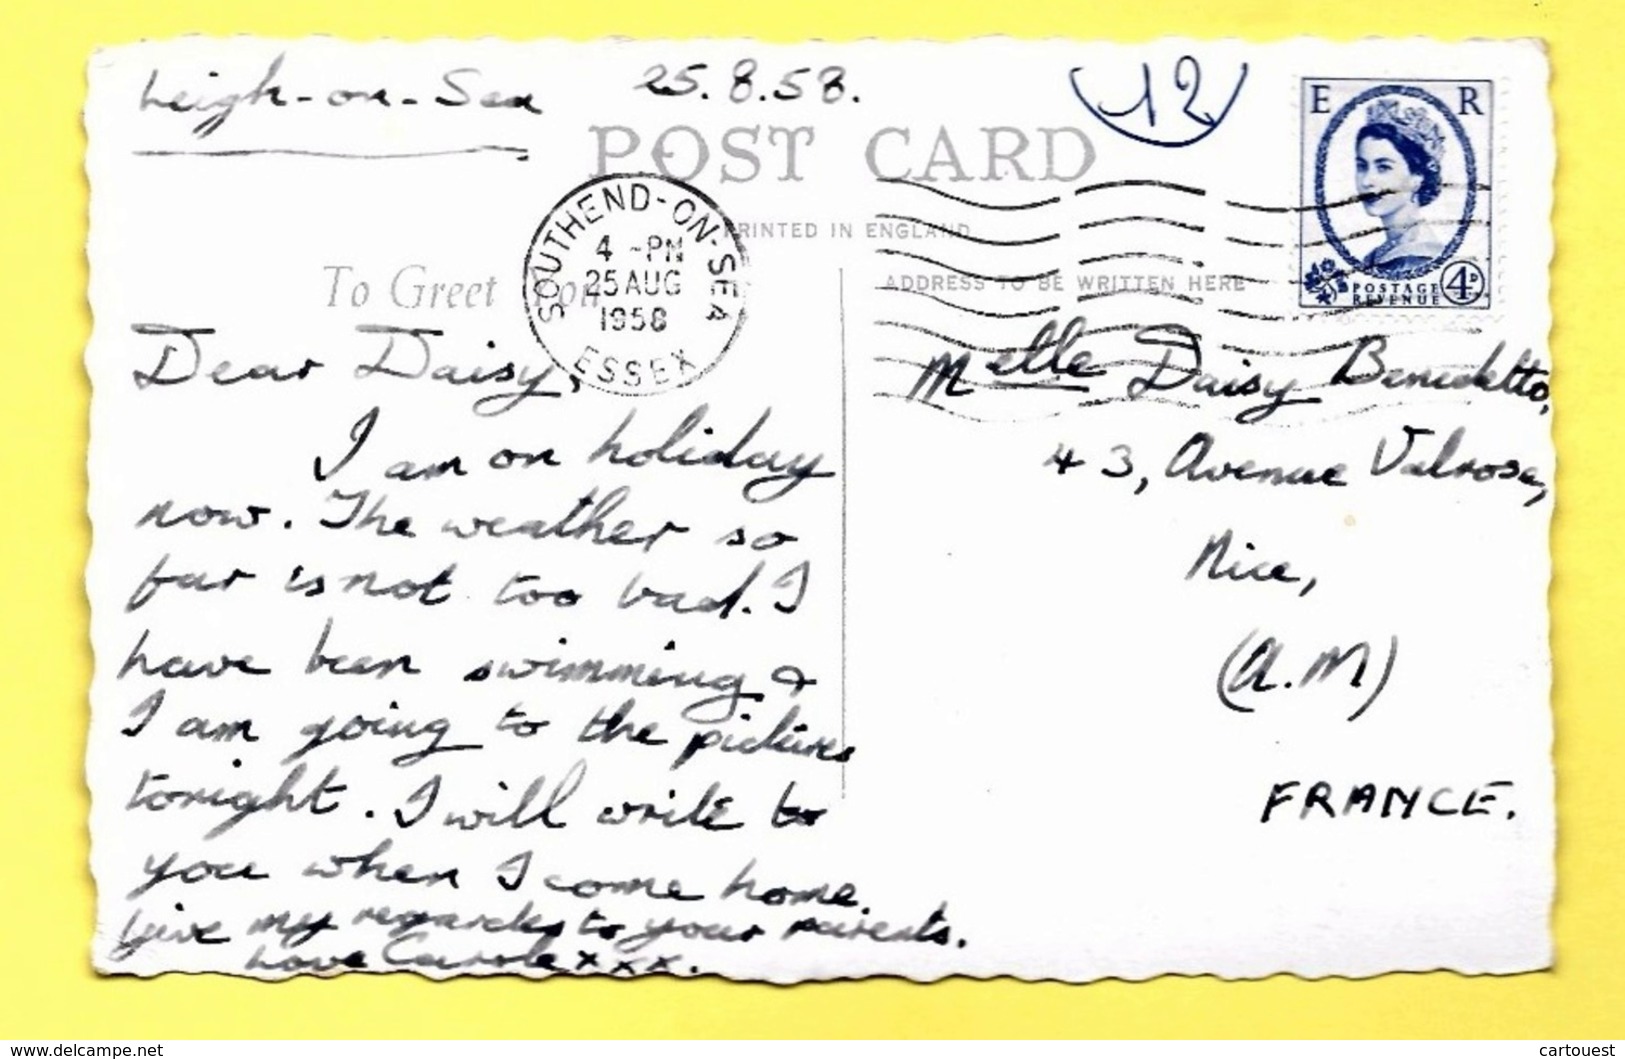 Leigh-on-Sea 25.8.58.
12
E R
POST CARD
PRINTED IN ENGLAND
SOUTHEND-ON-SEA
4 - PM
25 AUG
1958
ESSEX
POSTAGE
REVENUE
4D
To Greet You
ADDRESS TO BE WRITTEN HERE
Dear Daisy,
I am on holiday
now. The weather so
far is not too bad. I
have been swimming &
I am going to the pictures
tonight. I will write to
you when I come home.
Give my regards to your parents.
Love Carole xxx.
Melle Daisy Benedetto,
43, Avenue Valrose,
Nice,
(A.M)
FRANCE.
www.delcampe.net
cartouest